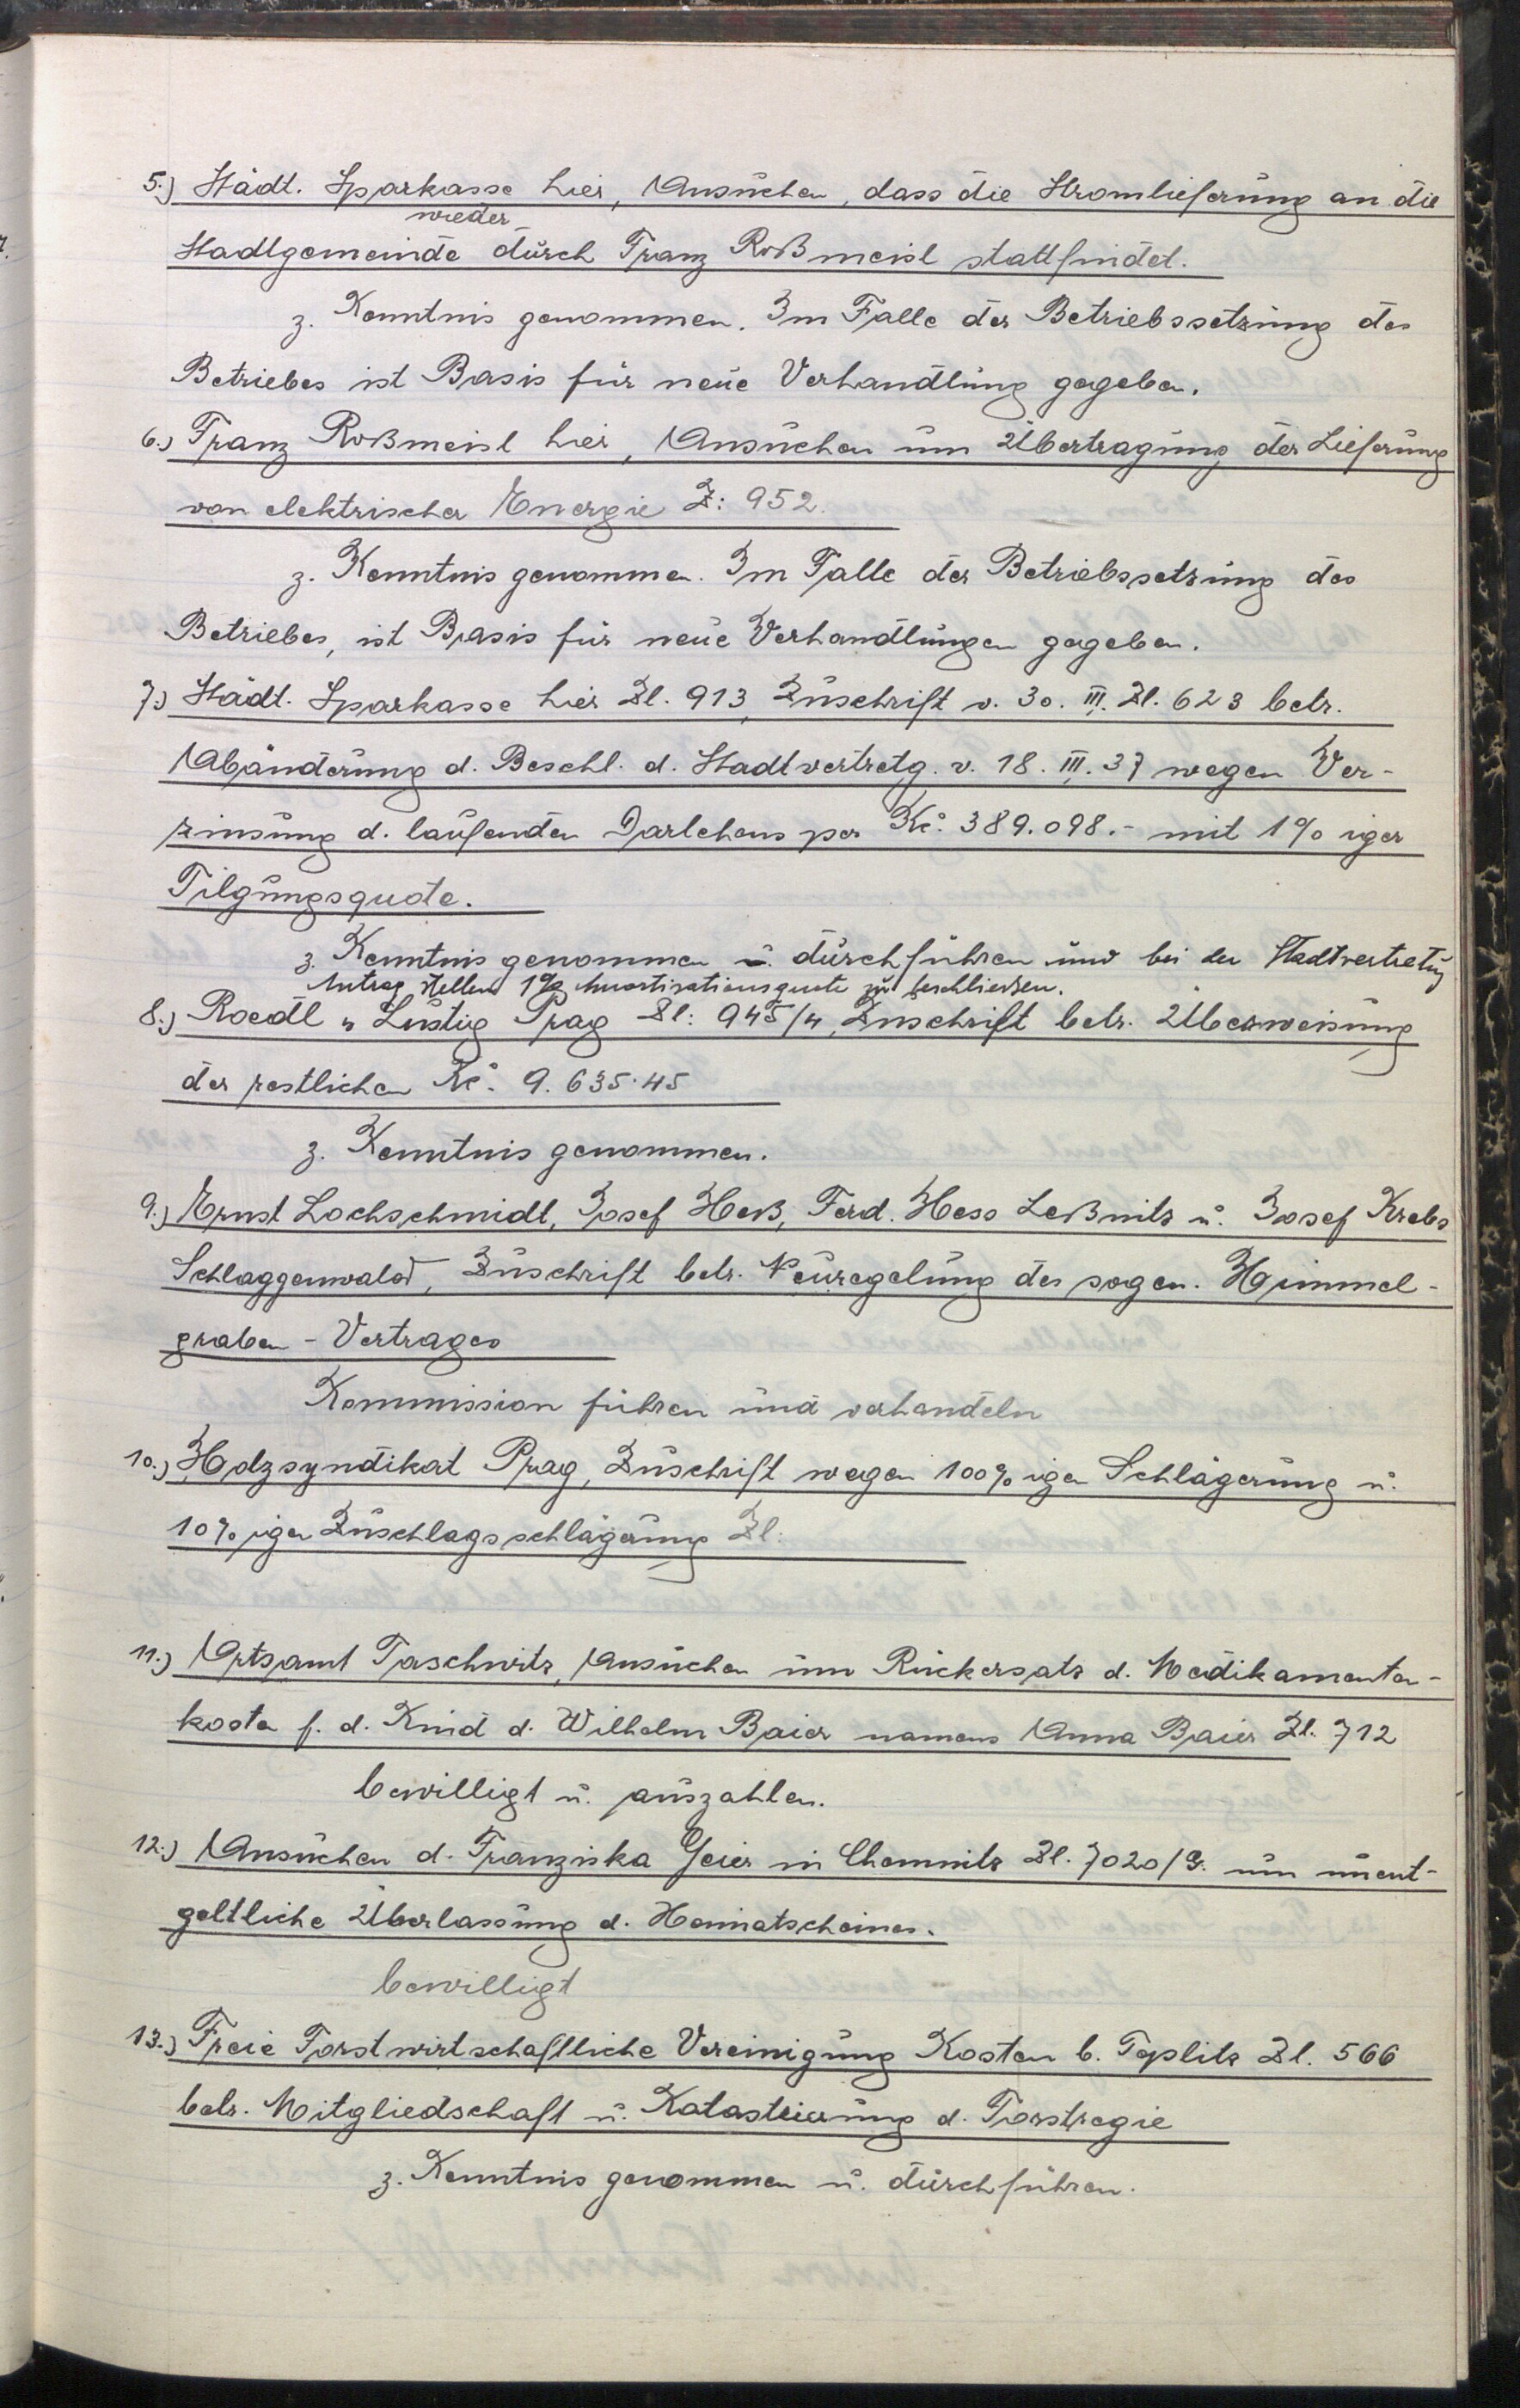 5.) Städt. Sparkasse hier, Ansuchen, dass die Stromlieferung an die
wieder
Stadtgemeinde durch Franz Roßmeisl stattfindet.
z. Kenntnis genommen. Im Falle der Betriebssetzung des
Betriebes ist Basis für neue Verhandlung gegeben.
6.) Franz Roßmeisl hier, Ansuchen um Übertragung der Lieferung
von elektrischer Energie Z: 952.
z. Kenntnis genommen. Im Falle der Betriebssetzung des
Betriebes, ist Basis für neue Verhandlungen gegeben.
7.) Städt. Sparkasse hier Zl. 913, Zuschrift v. 30. III. Zl. 623 betr.
Abänderung d. Beschl. d. Stadtvertretg. v. 18. III. 37 wegen Ver-
zinsung d. laufenden Darlehens per Kč. 389.098.- mit 1% iger
Tilgungsquote.
z. Kenntnis genommen u. durchführen und bei der Stadtvertretung
Antrag stellen 1% Amortisationsquote zu beschliessen.
8.) Roedl u Lustig Prag Zl: 945/4, Zuschrift betr. Überweisung
der restlichen Kč. 9.635.45
z. Kenntnis genommen.
9.) Ernst Lochschmidt, Josef Heß, Ferd. Hess Leßnitz u. Josef Krebs
Schlaggenwald, Zuschrift betr. Neuregelung des sogen. Himmel-
graben - Vertrages
Kommission führen und verhandeln
10.) Holzsyndikat Prag, Zuschrift wegen 100% igen Schlägerung u.
10% igen Zuschlagsschlägerung Zl.
11.) Ortsamt Taschwitz, Ansuchen um Rückersatz d. Medikamenten-
kosten f. d. Kind d. Wilhelm Baier namens Anna Baier Zl. 712
bewilligt u. auszahlen.
12.) Ansuchen d. Franziska Geier in Chemnitz Zl. 7020/G. um unent-
geltliche Überlassung d. Heimatscheines.
bewilligt
13.) Freie Forstwirtschaftliche Vereinigung Kosten b. Teplitz Zl. 566
betr. Mitgliedschaft u. Katastrierung d. Forstregie
z. Kenntnis genommen u. durchführen.